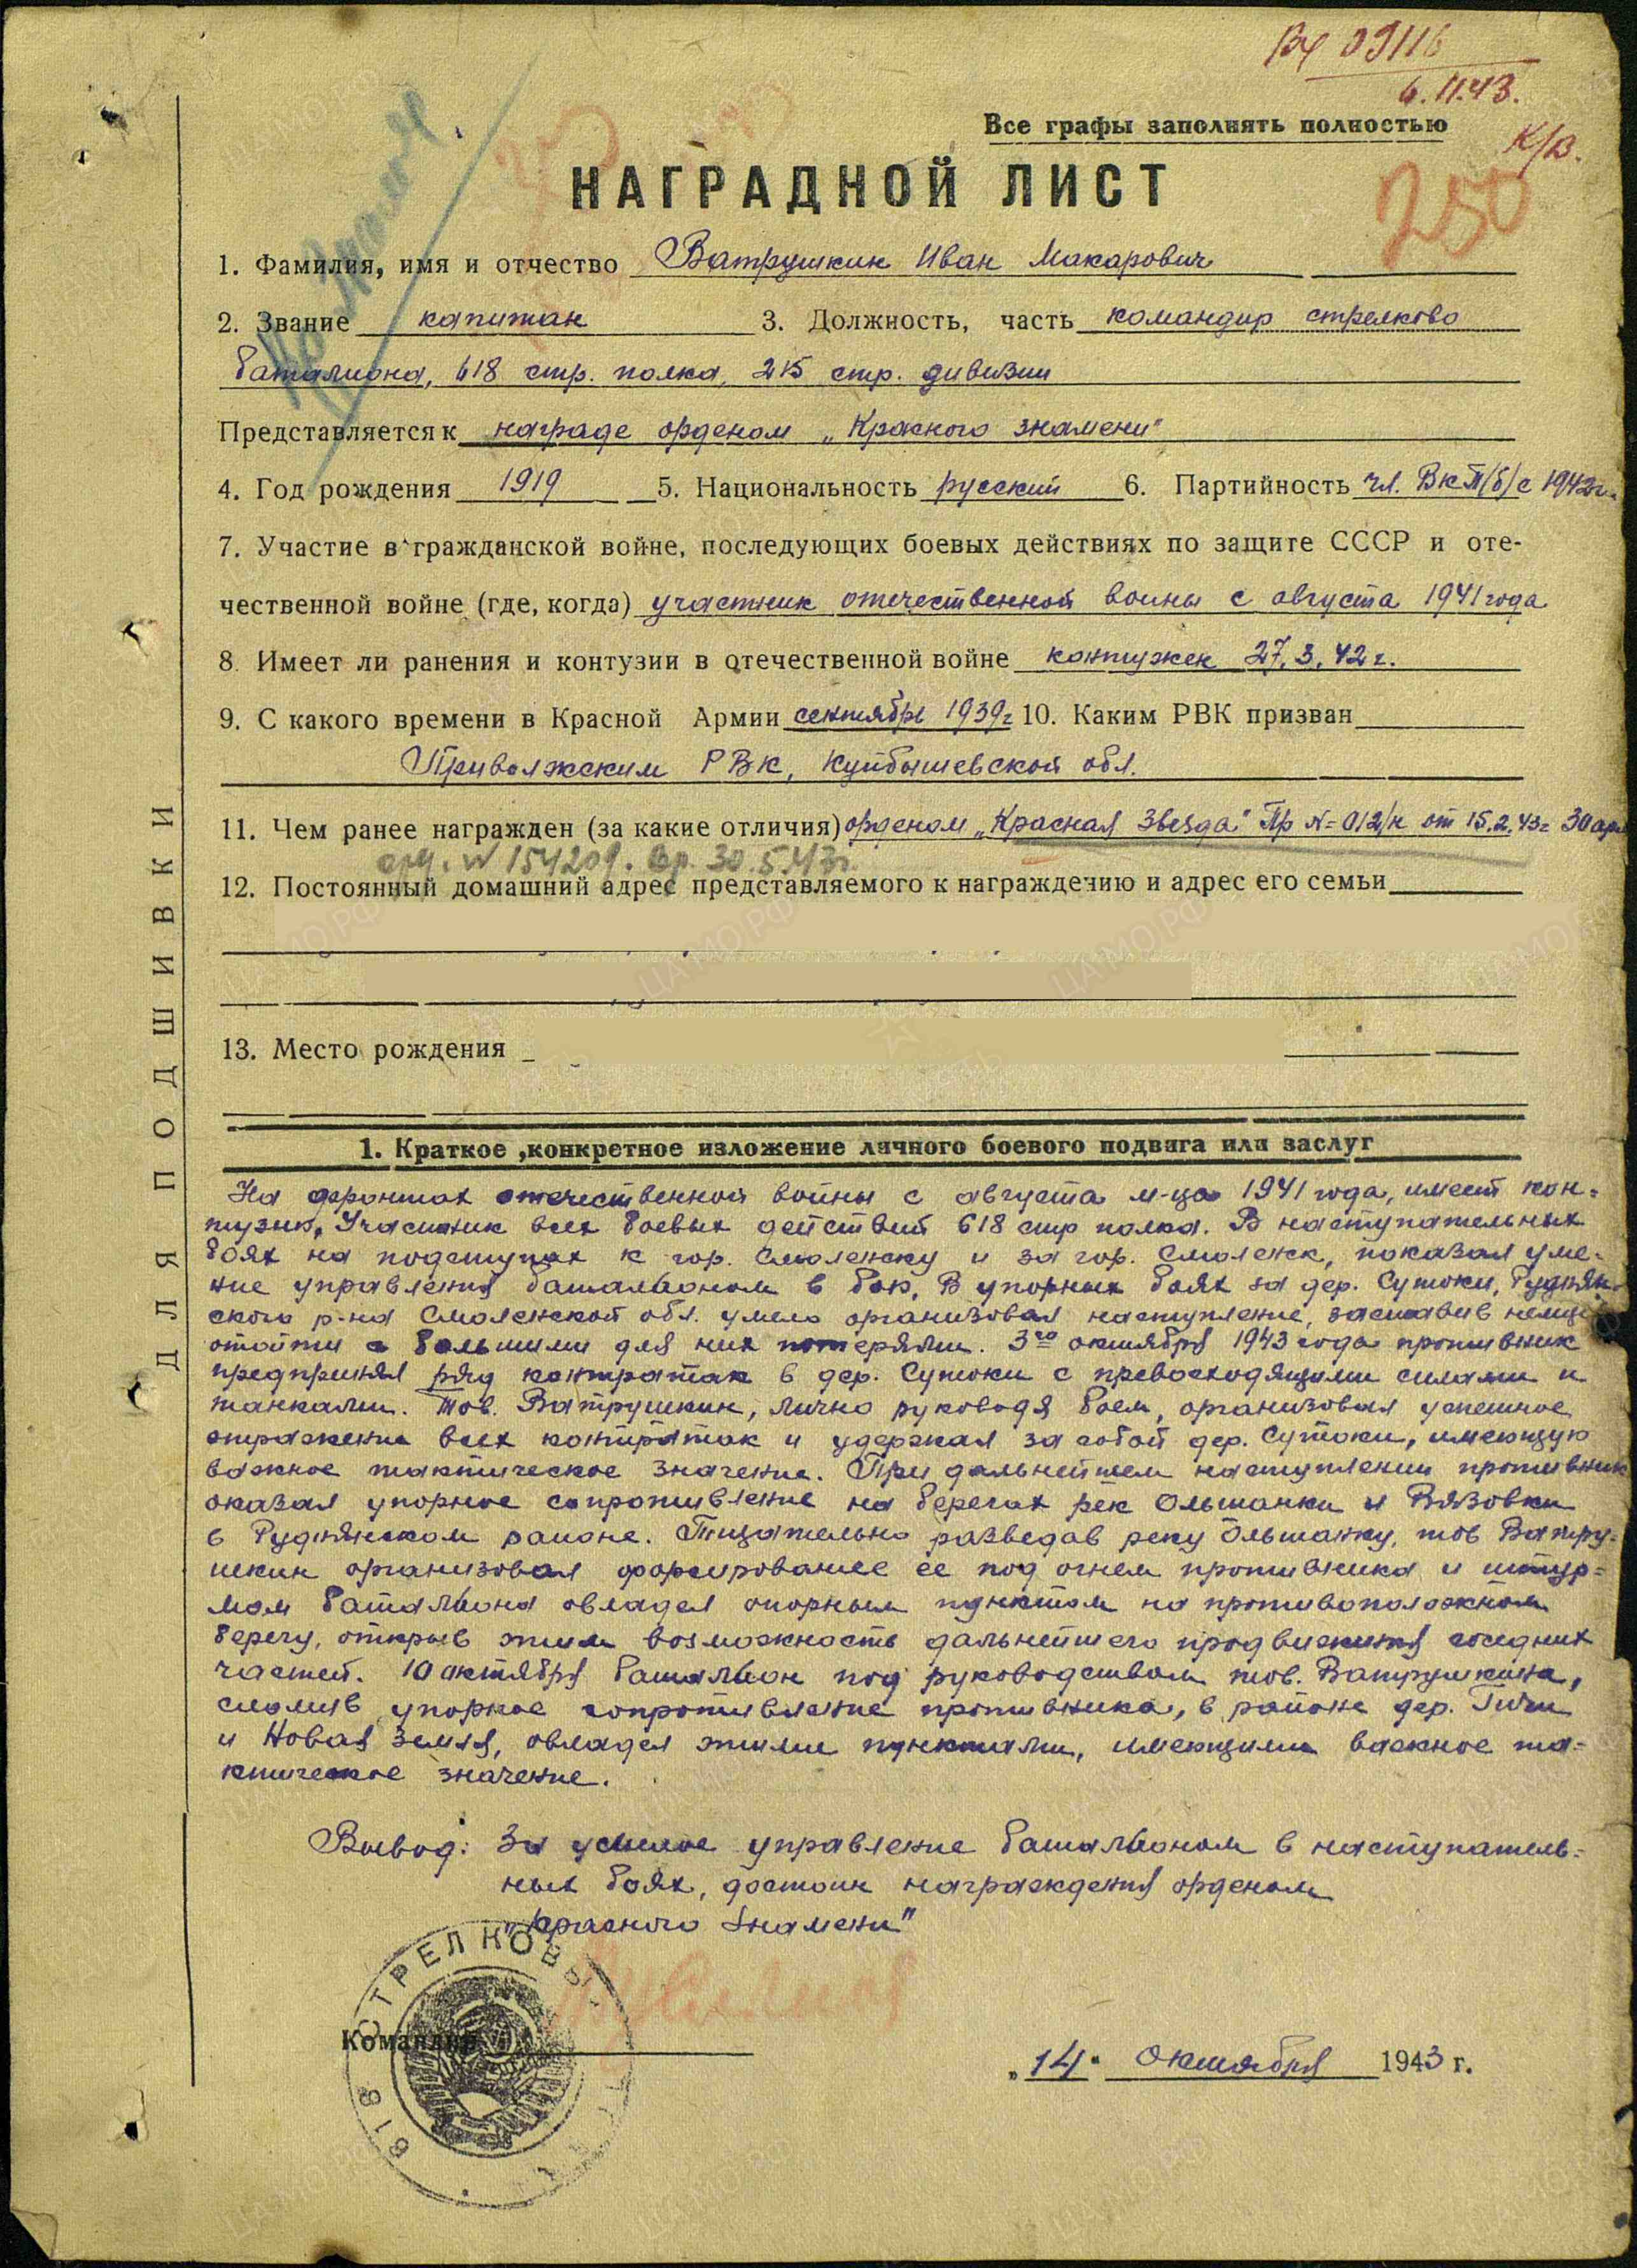 Вх 09116
6.11.43.
Все графы заполнять полностью
К/В.
НАГРАДНОЙ ЛИСТ
250
1. Фамилия, имя и отчество Ватрушкин Иван Макарович
2. Звание капитан 3. Должность, часть командир стрелково
баталиона, 618 стр. полка, 215 стр. дивизии
Представляется к награде орденом „Красного знамени"
4. Год рождения 1919 5. Национальность русский 6. Партийность чл. ВКП/б/с 1942г.
7. Участие в гражданской войне, последующих боевых действиях по защите СССР и оте-
чественной войне (где, когда) участник отечественной воины с августа 1941 года
8. Имеет ли ранения и контузии в отечественной войне контужен 27.3.42г.
9. С какого времени в Красной Армии сентябрь 1939г 10. Каким РВК призван
Приволжским РВК, Куйбышевской обл.
11. Чем ранее награжден (за какие отличия) орденом „Красная Звезда" Пр N=012/н от 15.2.43г 30 арм
орд. N 154209. Вр. 30.5.43г.
12. Постоянный домашний адрес представляемого к награждению и адрес его семьи
13. Место рождения
ДЛЯ ПОДШИВКИ
1. Краткое ,конкретное изложение личного боевого подвига или заслуг
На фронтах отечественной войны с августа м-ца 1941 года, имеет кон=
тузию, Участник всех боевых действий 618 стр полка. В наступательных
боях на подступах к гор. Смоленску и за гор. Смоленск, показал уме-
ние управления батальоном в бою. В упорных боях за дер. Сутоки, Руднян-
ского р-на Смоленской обл. умело организовал наступление, заставив немцев
отойти с большими для них потерями. 3го октября 1943 года противник
предпринял ряд контратак в дер. Сутоки с превосходящими силами и
танками. Тов. Ватрушкин, лично руководя боем, организовал успешное
отражение всех контратак и удержал за собой дер. Сутоки, имеющую
важное тактическое значение. При дальнейшем наступлении противник
оказал упорное сопротивление на берегах рек Ольшанки и Вязовки
в Руднянском районе. Тщательно разведав реку Ольшанку, тов Ватру=
шкин организовал форсирование ее под огнем противника и штур=
мом батальона овладел опорным пунктом на противоположном
берегу, открыв этим возможность дальнейшего продвижения соседних
частей. 10 октября батальон под руководством тов. Ватрушкина,
сломив упорное сопротивление противника, в районе дер.
и Новая Земля, овладел этими пунктами, имеющими важное та=
ктическое значение.
Вывод: За умелое управление батальоном в наступатель=
ных боях, достоин награждения орденом
"Красного Знамени"
618 СТРЕЛКОВЫЙ
Командир
„14" октября 1943 г.